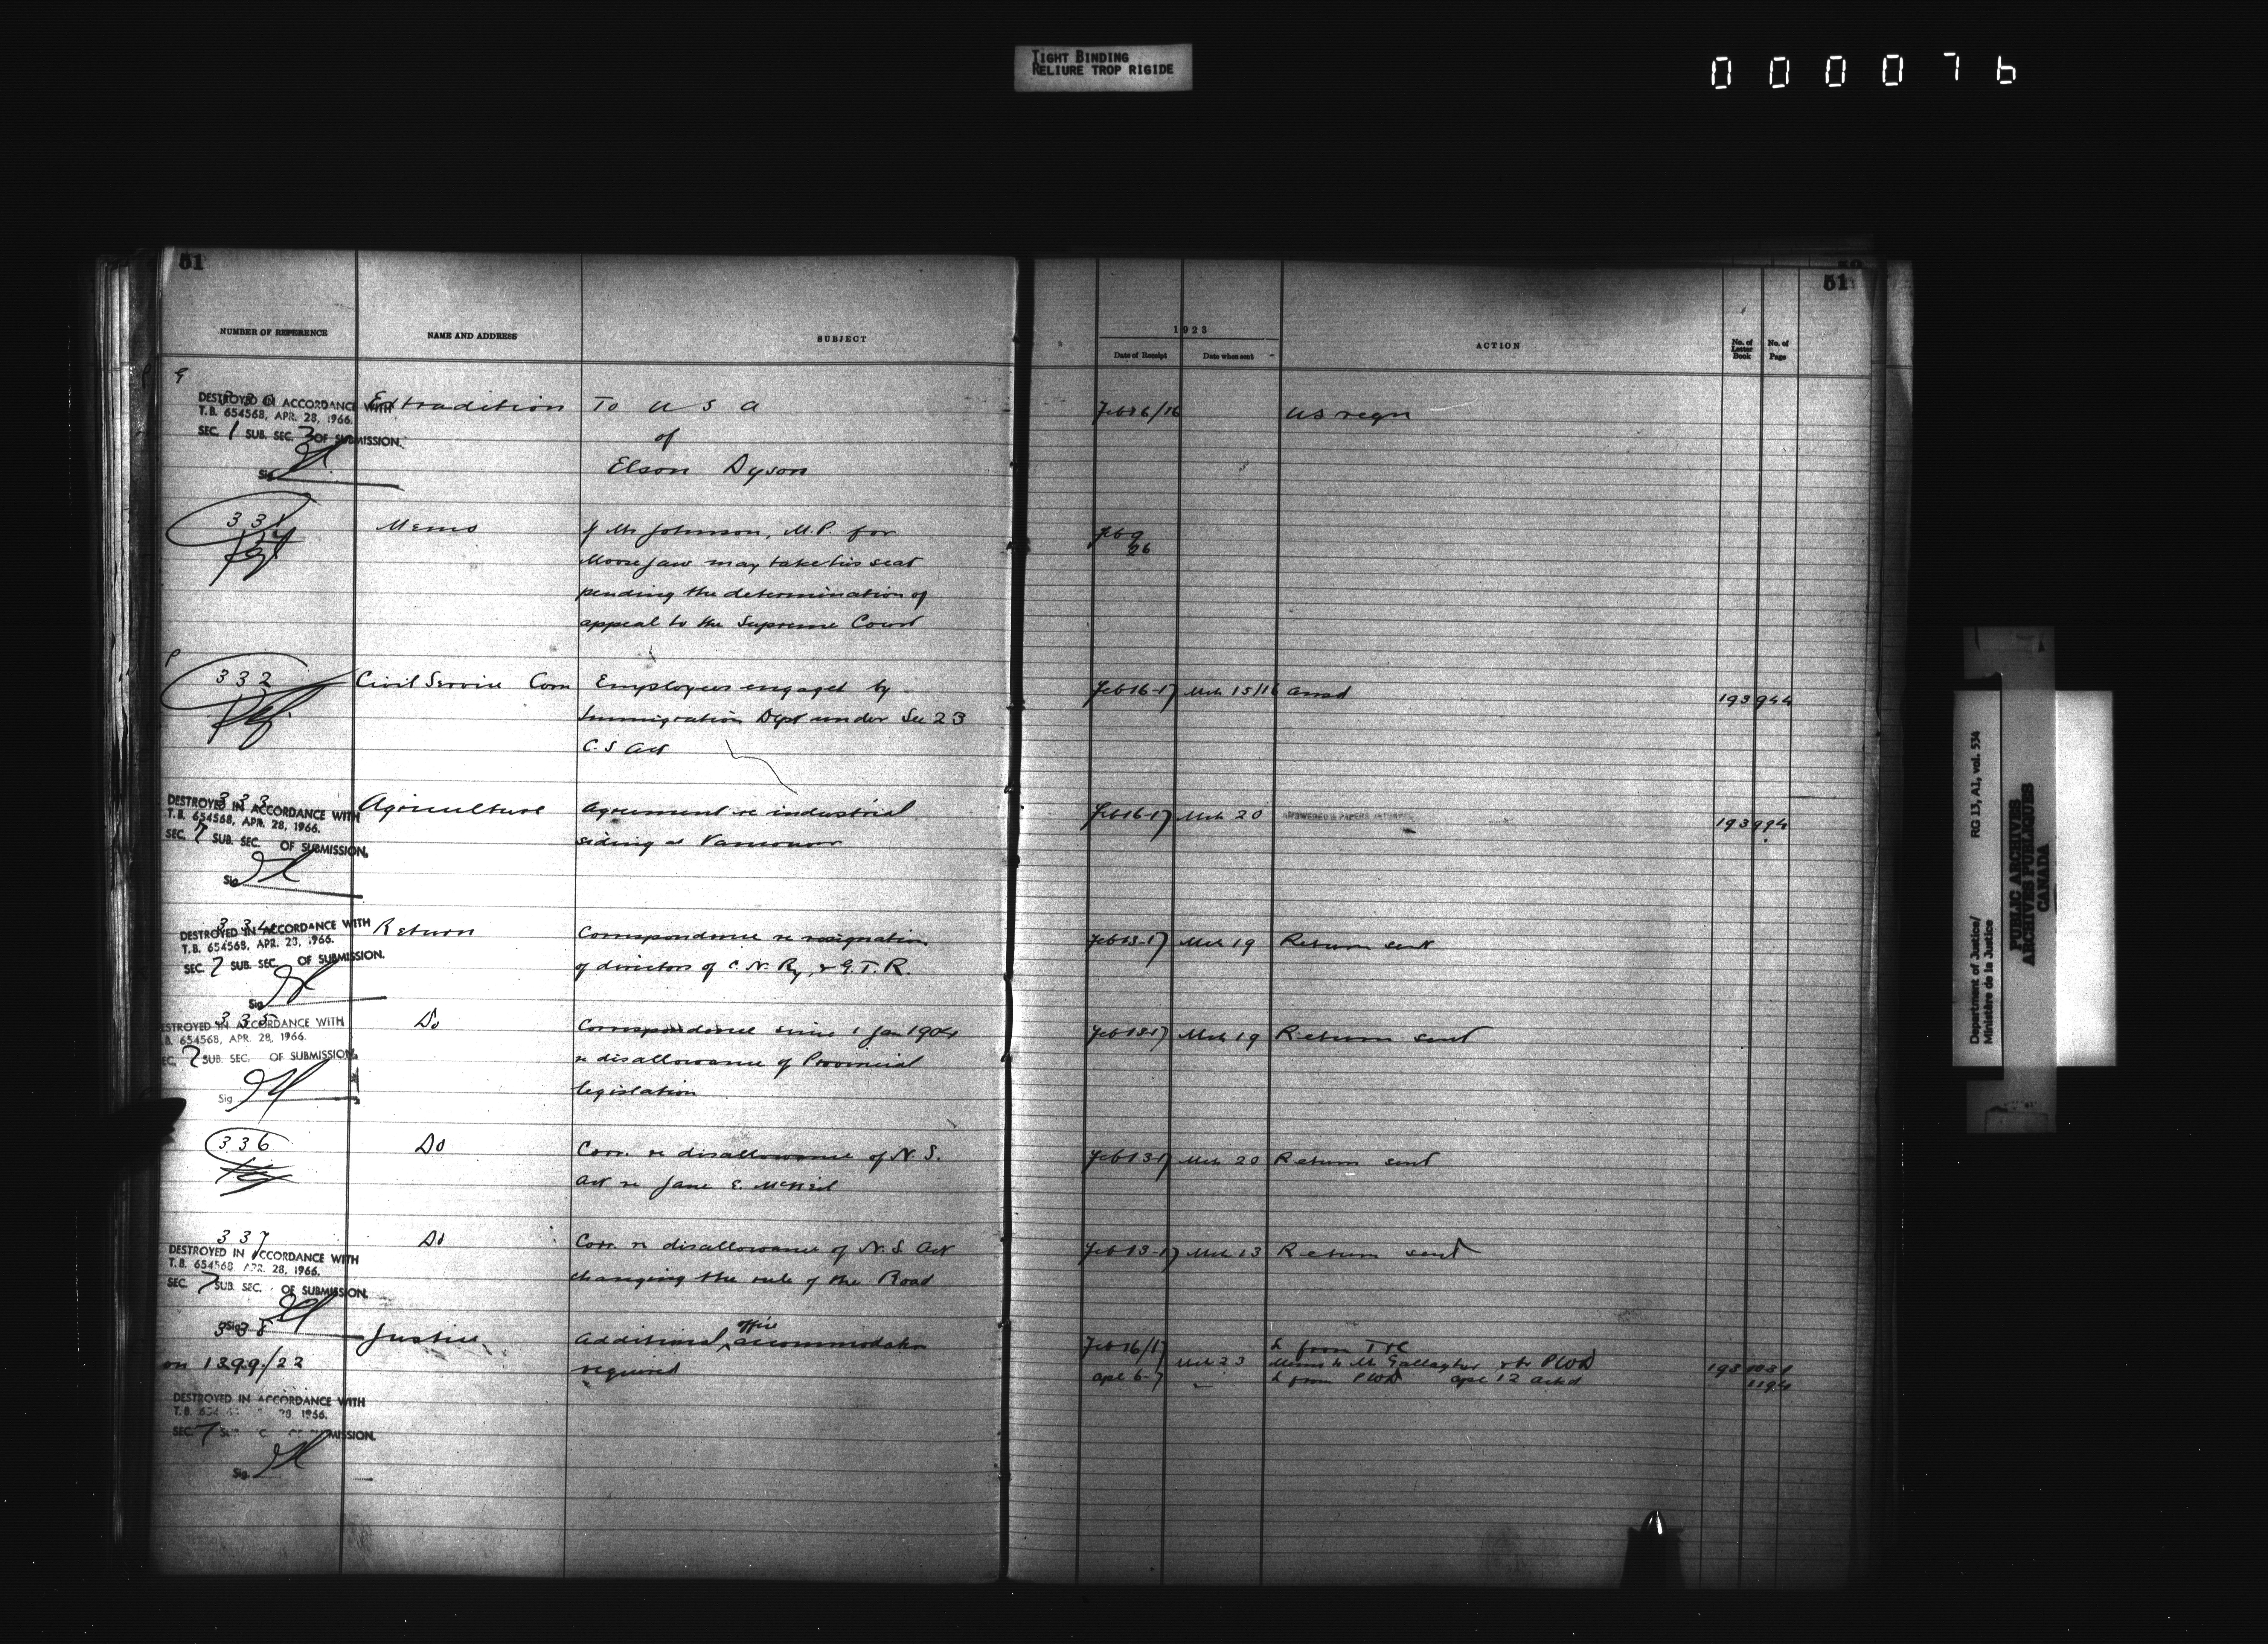 TIGHT BINDING
RELIURE TROP RIGIDE
000076
51
NUMBER OF REFERENCE NAME AND ADDRESS SUBJECT
DESTROYED IN ACCORDANCE WITH
T.B. 654568, APR. 28, 1966.
SEC. 1 SUB. SEC. 3 OF SUBMISSION.
Sig
Extradition To U S A
of
Elson Dyson
331 Memo If Mr Johnson, M.P. for
Moose Jaw may take his seat
pending the determination of
appeal to the Supreme Court
332 Civil Service Com Employees engaged by
Immigration Dept under Sec 23
C.S Act
333 Agriculture Agreement re industrial
siding at Vancouver
DESTROYED IN ACCORDANCE WITH
T.B. 654568, APR. 28, 1966.
SEC. 7 SUB. SEC. OF SUBMISSION.
Sig
334 Return Correspondence re resignation
of directors of C.N. Ry, & G.T.R.
DESTROYED IN ACCORDANCE WITH
T.B. 654568, APR. 28, 1966.
SEC. 7 SUB. SEC. OF SUBMISSION.
Sig
335 Do Correspondence since 1 Jan 1904
re disallowance of Provincial
legislation
ESTROYED IN ACCORDANCE WITH
B. 654568, APR. 28, 1966.
EC. 7 SUB. SEC. OF SUBMISSION.
Sig
336 Do Corr. re disallowance of N.S.
Act re Jane E. McNeil
337 Do Corr. re disallowance of N.S Act
changing the rule of the Road
DESTROYED IN ACCORDANCE WITH
T.B. 654568 APR. 28, 1966.
SEC. 7 SUB. SEC. OF SUBMISSION.
Sig
338 Justice Additional office accommodation
on 1399/22 required
DESTROYED IN ACCORDANCE WITH
T.B. 28, 1966.
SEC. 7
Sig
51
1923
Date of Receipt Date when sent ACTION No. of Letter Book No. of Page
Feb 26/16 US reqn
Feb 9
26
Feb 16-17 Mch 15/16 ansd 193 944
Feb 16-17 Mch 20 ANSWERED & PAPERS RETURNED 193 994
Feb 13-17 Mch 19 Return sent
Feb 13-17 Mch 19 Return sent
Feb 13-17 Mch 20 Return sent
Feb 13-17 Mch 13 Return sent
Feb 16/17 L from
Mch 23 Memo to Mr Gallagher & to PWD 193
Apl 6-7 L from PWD Apl 12 ackd 1194
Department of Justice/ RG 13, A1, vol. 534
Ministère de la Justice
PUBLIC ARCHIVES
ARCHIVES PUBLIQUES
CANADA